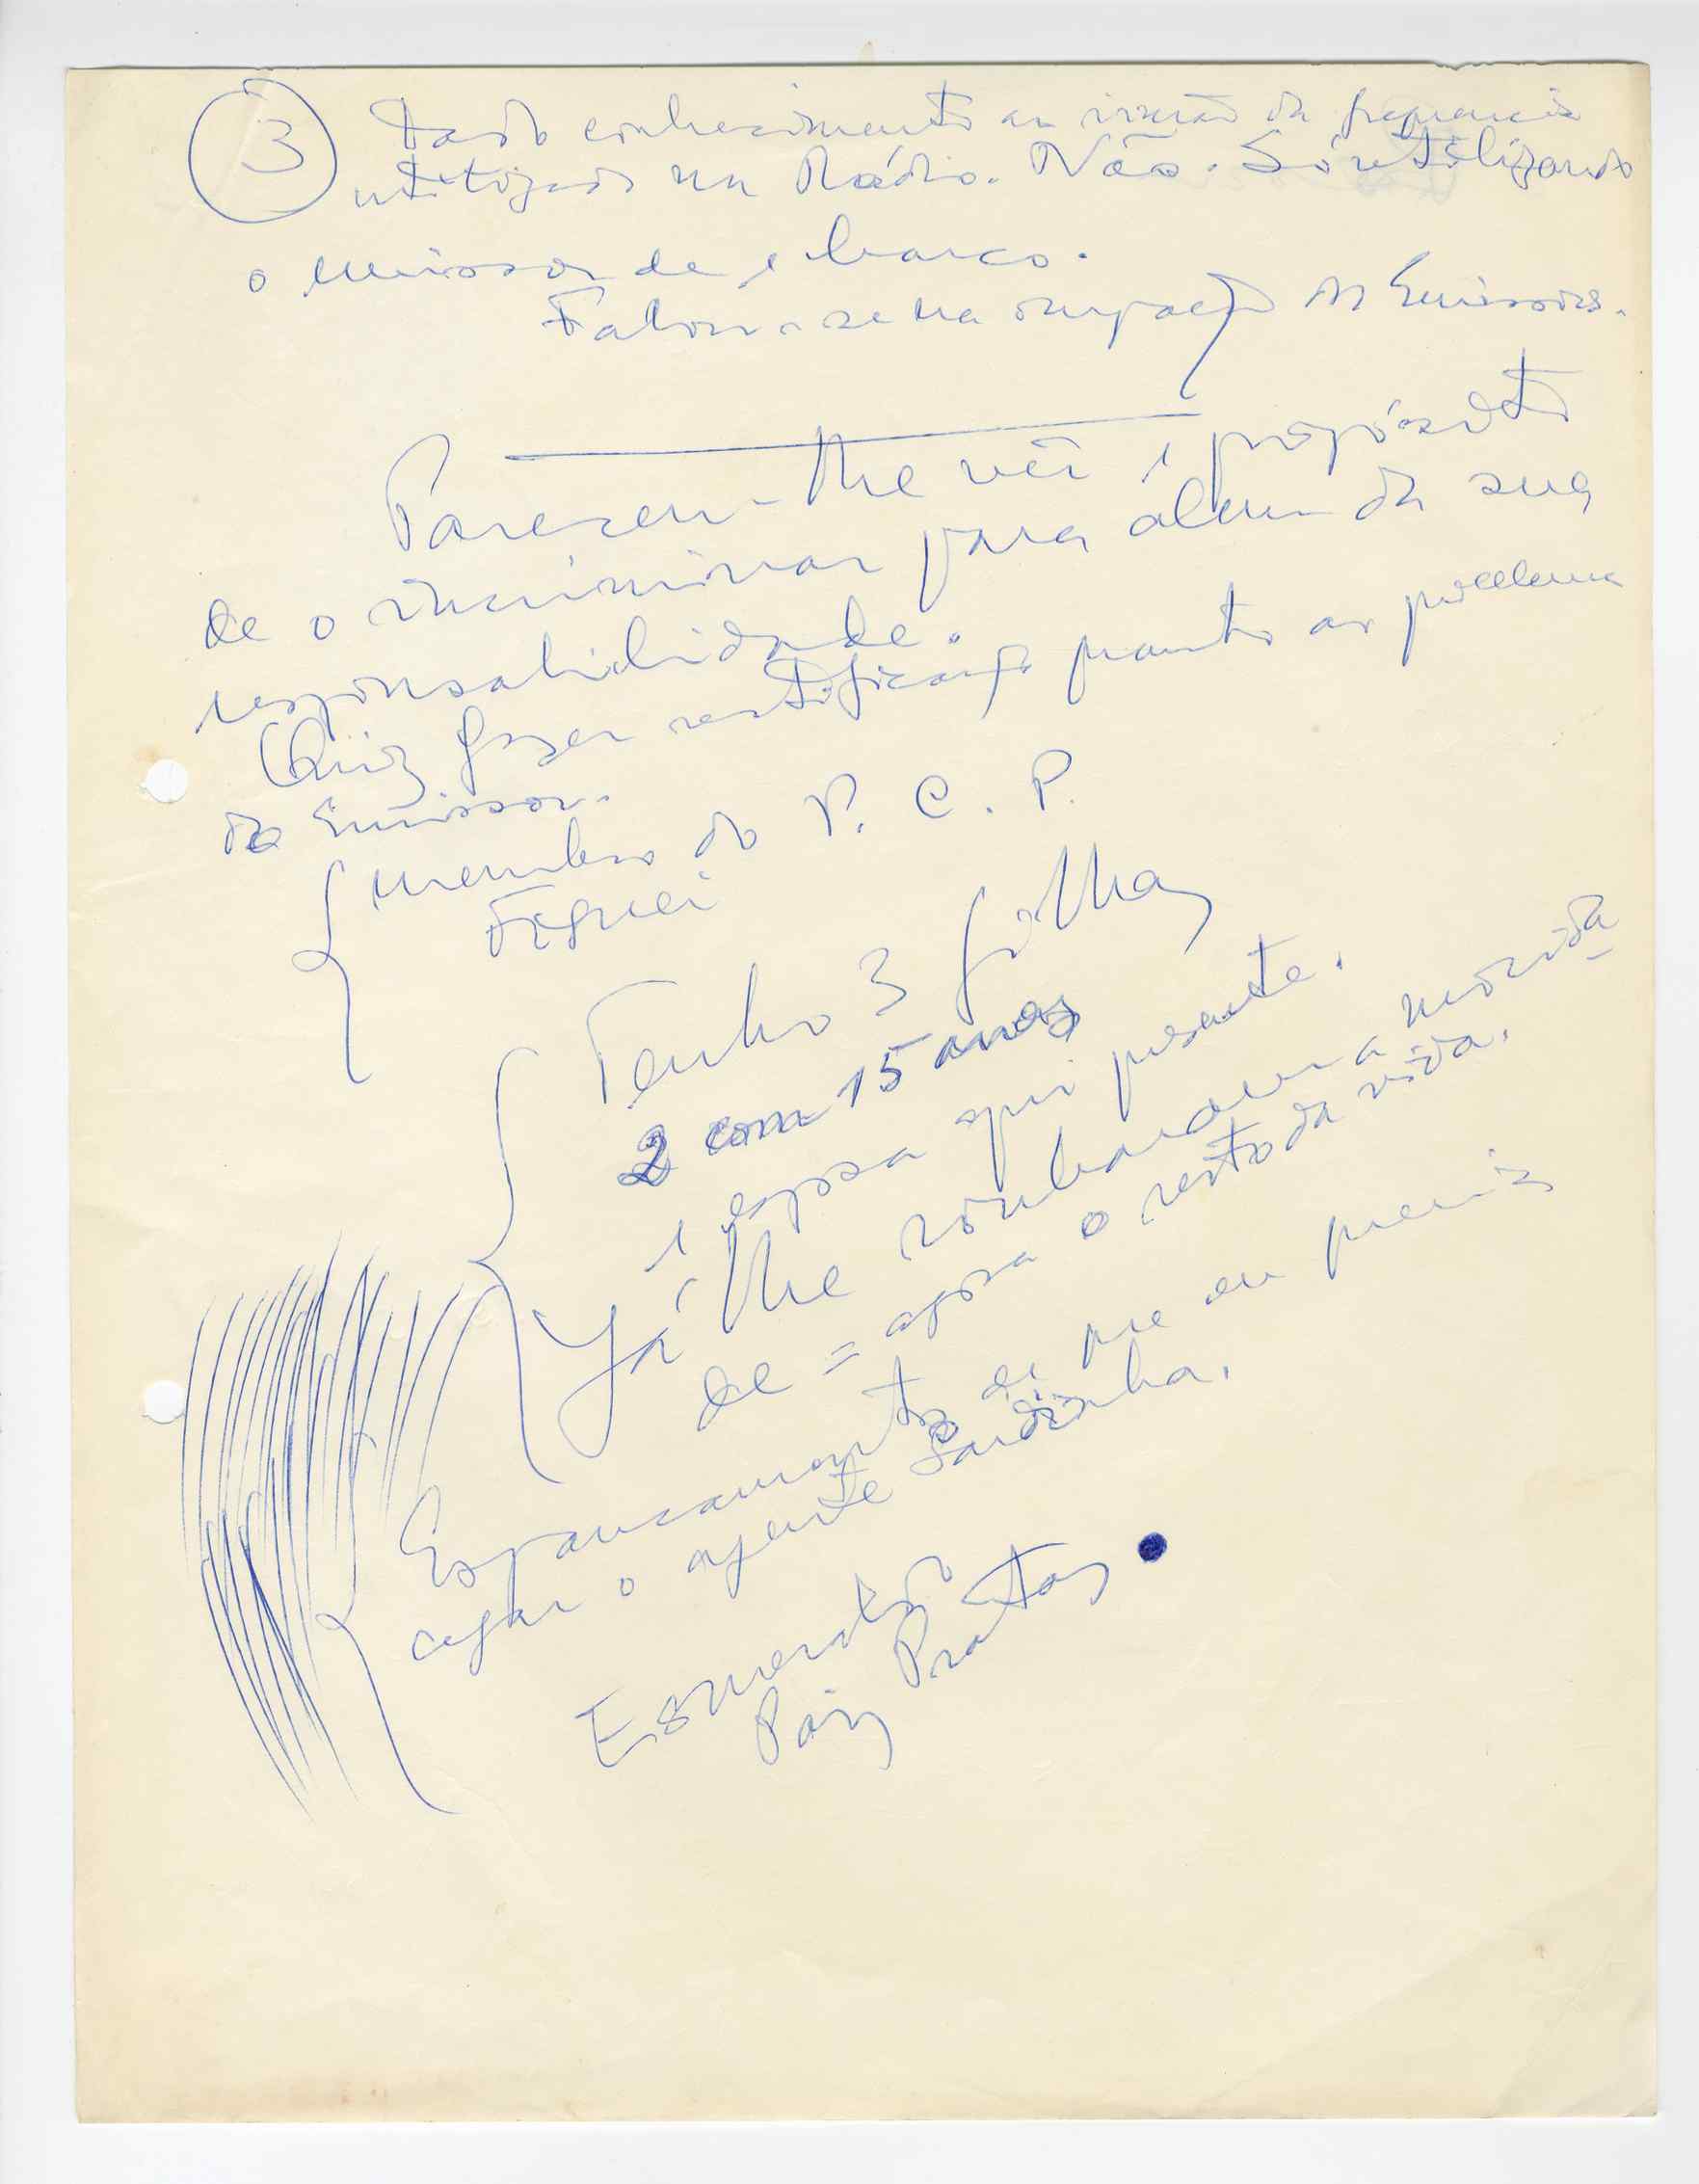 3 Dado conhecimento ao irmão da frequencia
utilizada na Rádio. Não. Só utilizando
o emissor de 1 barco.
Falou-se na ocupação dos Emissores.
Pareceu-lhe ver 1 propósito
de o incriminar para alem da sua
responsabilidade.
Quiz fazer rectificação quanto ao problema
do Emissor.
membro do P. C. P.
Tenho 3 filhas
2 com 15 anos
1 esposa aqui presente.
Já lhe roubaram a mocida
de = agora o resto da vida.
Espancamentos de que eu queria
cegar o agente Sardinha.
Esmeraldo
Pais Pratas